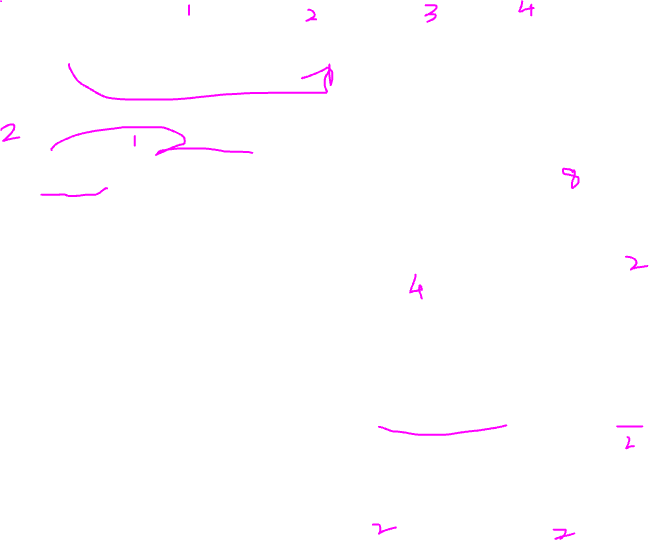 1 2 3 4
2 1
8
2
4
2
2 2